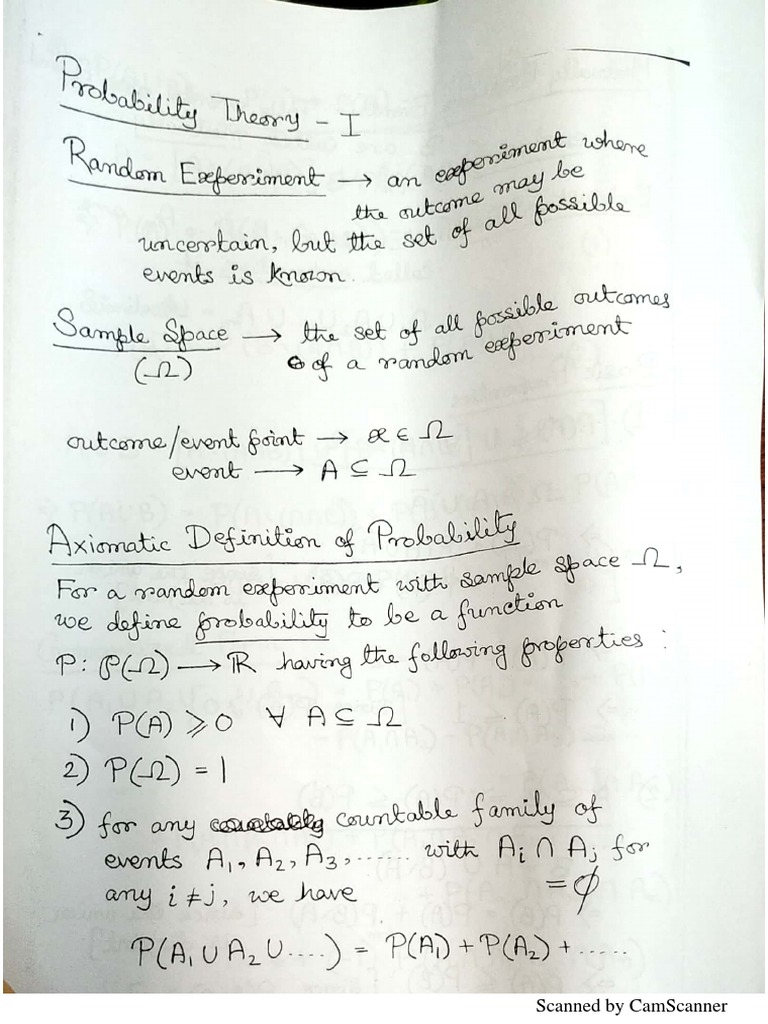 Probability Theory - I
Random Experiment → an experiment where
the outcome may be
uncertain, but the set of all possible
events is known.
Sample Space → the set of all possible outcomes
(Ω) of a random experiment
outcome/event point → x ∈ Ω
event → A ⊆ Ω
Axiomatic Definition of Probability
For a random experiment with sample space Ω,
we define probability to be a function
P: P(Ω) → ℝ having the following properties:
1) P(A) ⩾ 0 ∀ A ⊆ Ω
2) P(Ω) = 1
3) for any countable family of
events A₁, A₂, A₃, ....... with Aᵢ ∩ Aⱼ for
any i ≠ j, we have = ϕ
P(A₁ ∪ A₂ ∪ ....) = P(A₁) + P(A₂) + ......
Scanned by CamScanner